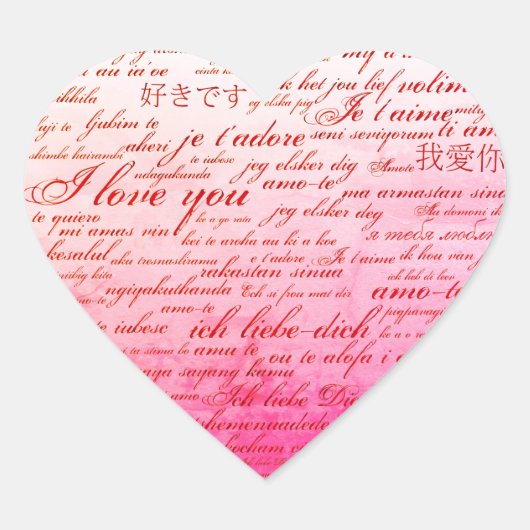 my a
au ia'oe
cinta
k het jou lief volim
ihhila 好きです eg elska þig Je t'aime mitig
ljubim te
aheri je t'adore seni seviyorum ti am
shimbe hairambi te iubesc 我愛你
ndagukunda jeg elsker dig Amote
I love you amo-te ma armastan sind
te quiero ke a go rata jeg elsker deg Au domoni ik
mi amas vin kei te aroha au ki a koe я тебя люблю
kesalul e t'adore Je t'aime ik hou van
aku tresnasliramu rakastan sinua ich heb di leev
ngiyakuthanda Ech si frou mat dir amo-te
amo-te pigpavagi
te iubesc ich liebe-dich ke a o r
ti ta stima bo amu te ou te alofa i a
aya sayang kamu
Ich liebe Dic
tshemenuadede
kocham ci